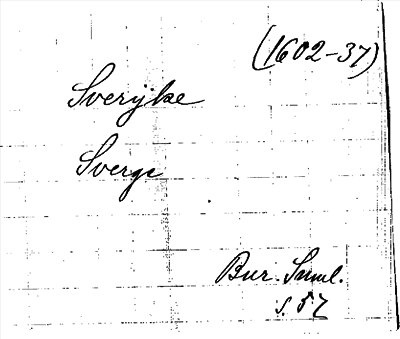 (1602-37)
Sverijke
Sverge
Bur. Suml.
s. 57